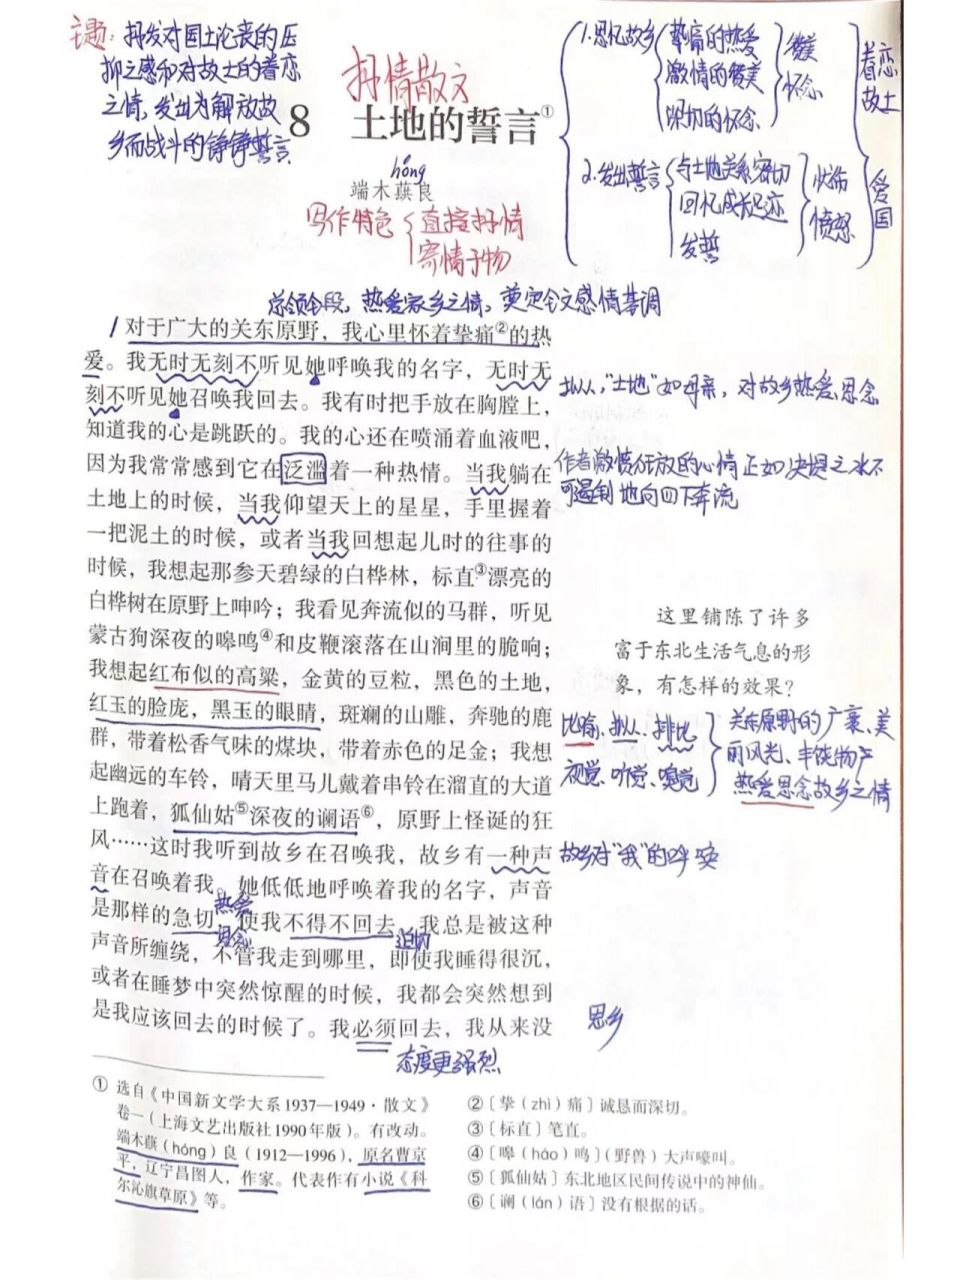 主题：抒发对国土沦丧的压
抑之感和对故土的眷恋
之情，发出为解放故
乡而战斗的铮铮誓言
抒情散文
8 土地的誓言①
hóng
端木蕻良
写作特色 直接抒情
寄情于物
1.思忆故乡 挚痛的热爱
激情的赞美
深切的怀念
赞美
怀念
眷恋
故土
2.发出誓言 与土地关系密切
回忆成长足迹
发誓
愤怒
爱国
总领全段，热爱家乡之情，奠定全文感情基调
对于广大的关东原野，我心里怀着挚痛②的热
爱。我无时无刻不听见她呼唤我的名字，无时无
刻不听见她召唤我回去。我有时把手放在胸膛上，
知道我的心是跳跃的。我的心还在喷涌着血液吧，
因为我常常感到它在泛滥着一种热情。当我躺在
土地上的时候，当我仰望天上的星星，手里握着
一把泥土的时候，或者当我回想起儿时的往事的
时候，我想起那参天碧绿的白桦林，标直③漂亮的
白桦树在原野上呻吟；我看见奔流似的马群，听见
蒙古狗深夜的嗥鸣④和皮鞭滚落在山涧里的脆响；
我想起红布似的高粱，金黄的豆粒，黑色的土地，
红玉的脸庞，黑玉的眼睛，斑斓的山雕，奔驰的鹿
群，带着松香气味的煤块，带着赤色的足金；我想
起幽远的车铃，晴天里马儿戴着串铃在溜直的大道
上跑着，狐仙姑⑤深夜的谰语⑥，原野上怪诞的狂
风……这时我听到故乡在召唤我，故乡有一种声
音在召唤着我。她低低地呼唤着我的名字，声音
是那样的急切，使我不得不回去。我总是被这种
声音所缠绕，不管我走到哪里，即使我睡得很沉，
或者在睡梦中突然惊醒的时候，我都会突然想到
是我应该回去的时候了。我必须回去，我从来没
热爱
思念
迫切
态度更强烈
拟人，“土地”如母亲，对故乡热爱、思念
作者激愤狂放的心情正如决堤之水不
可遏制地向四下奔流
这里铺陈了许多
富于东北生活气息的形
象，有怎样的效果？
比喻、拟人、排比
视觉、听觉、嗅觉
关东原野的广袤、美
丽风光、丰饶物产
热爱思念故乡之情
故乡对“我”的呼唤
思乡
① 选自《中国新文学大系1937—1949·散文》
卷一（上海文艺出版社1990年版）。有改动。
端木蕻（hóng）良（1912—1996），原名曹京
平，辽宁昌图人，作家。代表作有小说《科
尔沁旗草原》等。
②〔挚（zhì）痛〕诚恳而深切。
③〔标直〕笔直。
④〔嗥（háo）鸣〕（野兽）大声嚎叫。
⑤〔狐仙姑〕东北地区民间传说中的神仙。
⑥〔谰（lán）语〕没有根据的话。